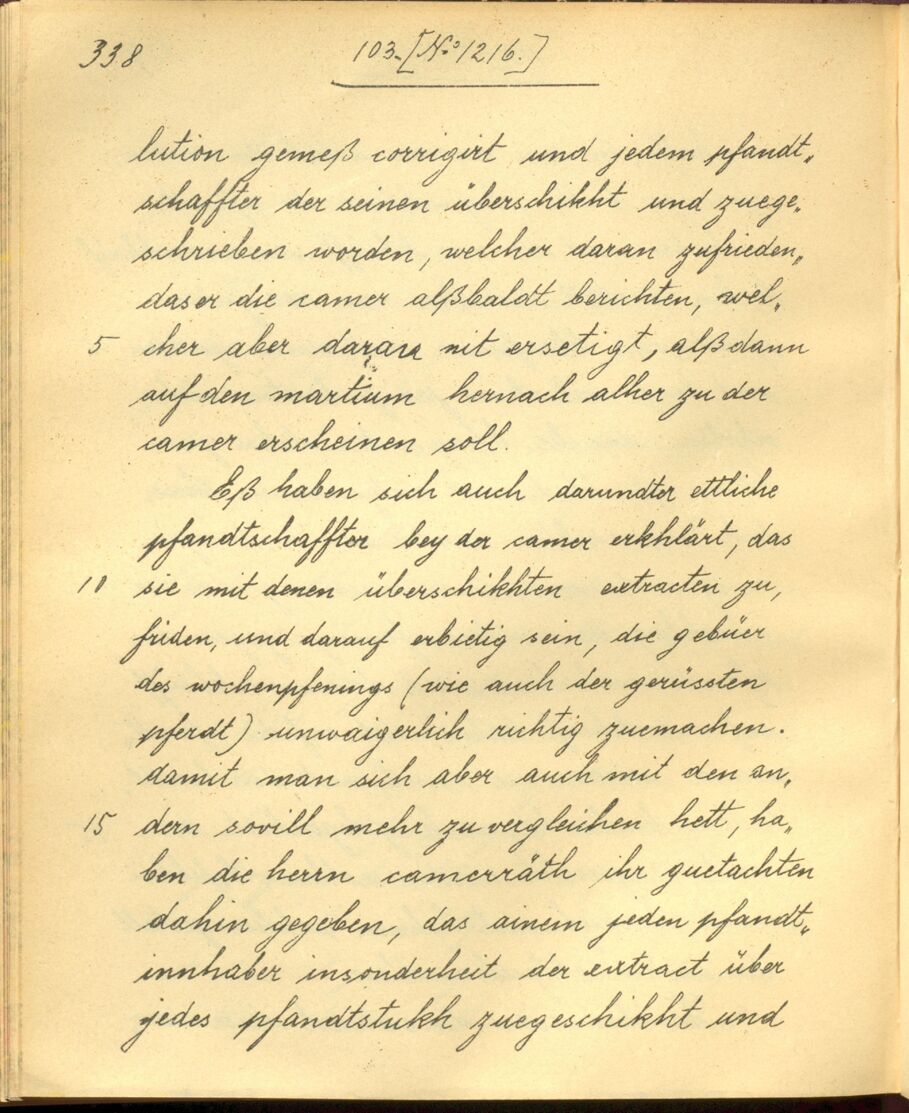 338
103.[No 1216.]
lution gemeß corrigirt und jedem pfandt„
schaffter der seinen überschikht und zuege„
schrieben worden, welcher daran zufrieden„
das er die camer alßbaldt berichten, wel„
5 cher aber daran nit ersetigt, alß dann
auf den martium hernach alher zu der
camer erscheinen soll.
Eß haben sich auch darundter ettliche
pfandtschaffter bey der camer erkhlärt, das
10 sie mit denen überschikhten extracten zu„
friden, und darauf erbietig sein, die gebüer
des wochenpfenings (wie auch der gerüssten
pferdt) unwaigerlich richtig zuemachen.
damit man sich aber auch mit den an„
15 dern sovill mehr zu vergleichen hett, ha„
ben die herrn camerräth ihr guetachten
dahin gegeben, das ainem jeden pfandt„
innhaber insonderheit der extract über
jedes pfandtstukh zuegeschikht und